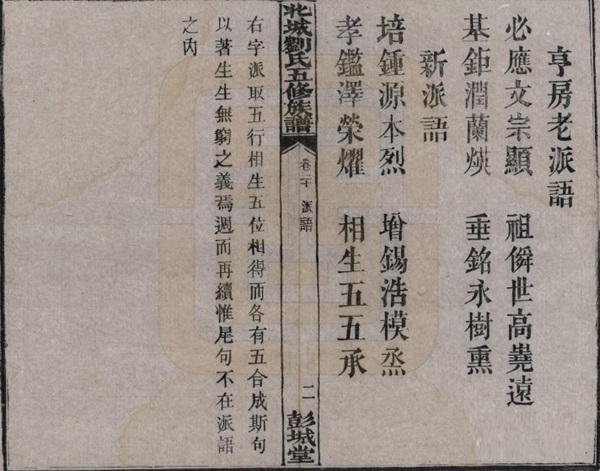 亨房老派語
必應文宗顯 祖僯世高蕘遠
基鉅潤蘭煐 垂銘永樹熏
新派語
培鍾源本烈 增錫浩模烝
孝鑑澤榮燿 相生五五承
北城劉氏五修族譜 卷二 派語 二 彭城堂
右字派取五行相生五位相得而各有五合成斯句
以著生生無窮之義焉週而再續惟尾句不在派語
之內